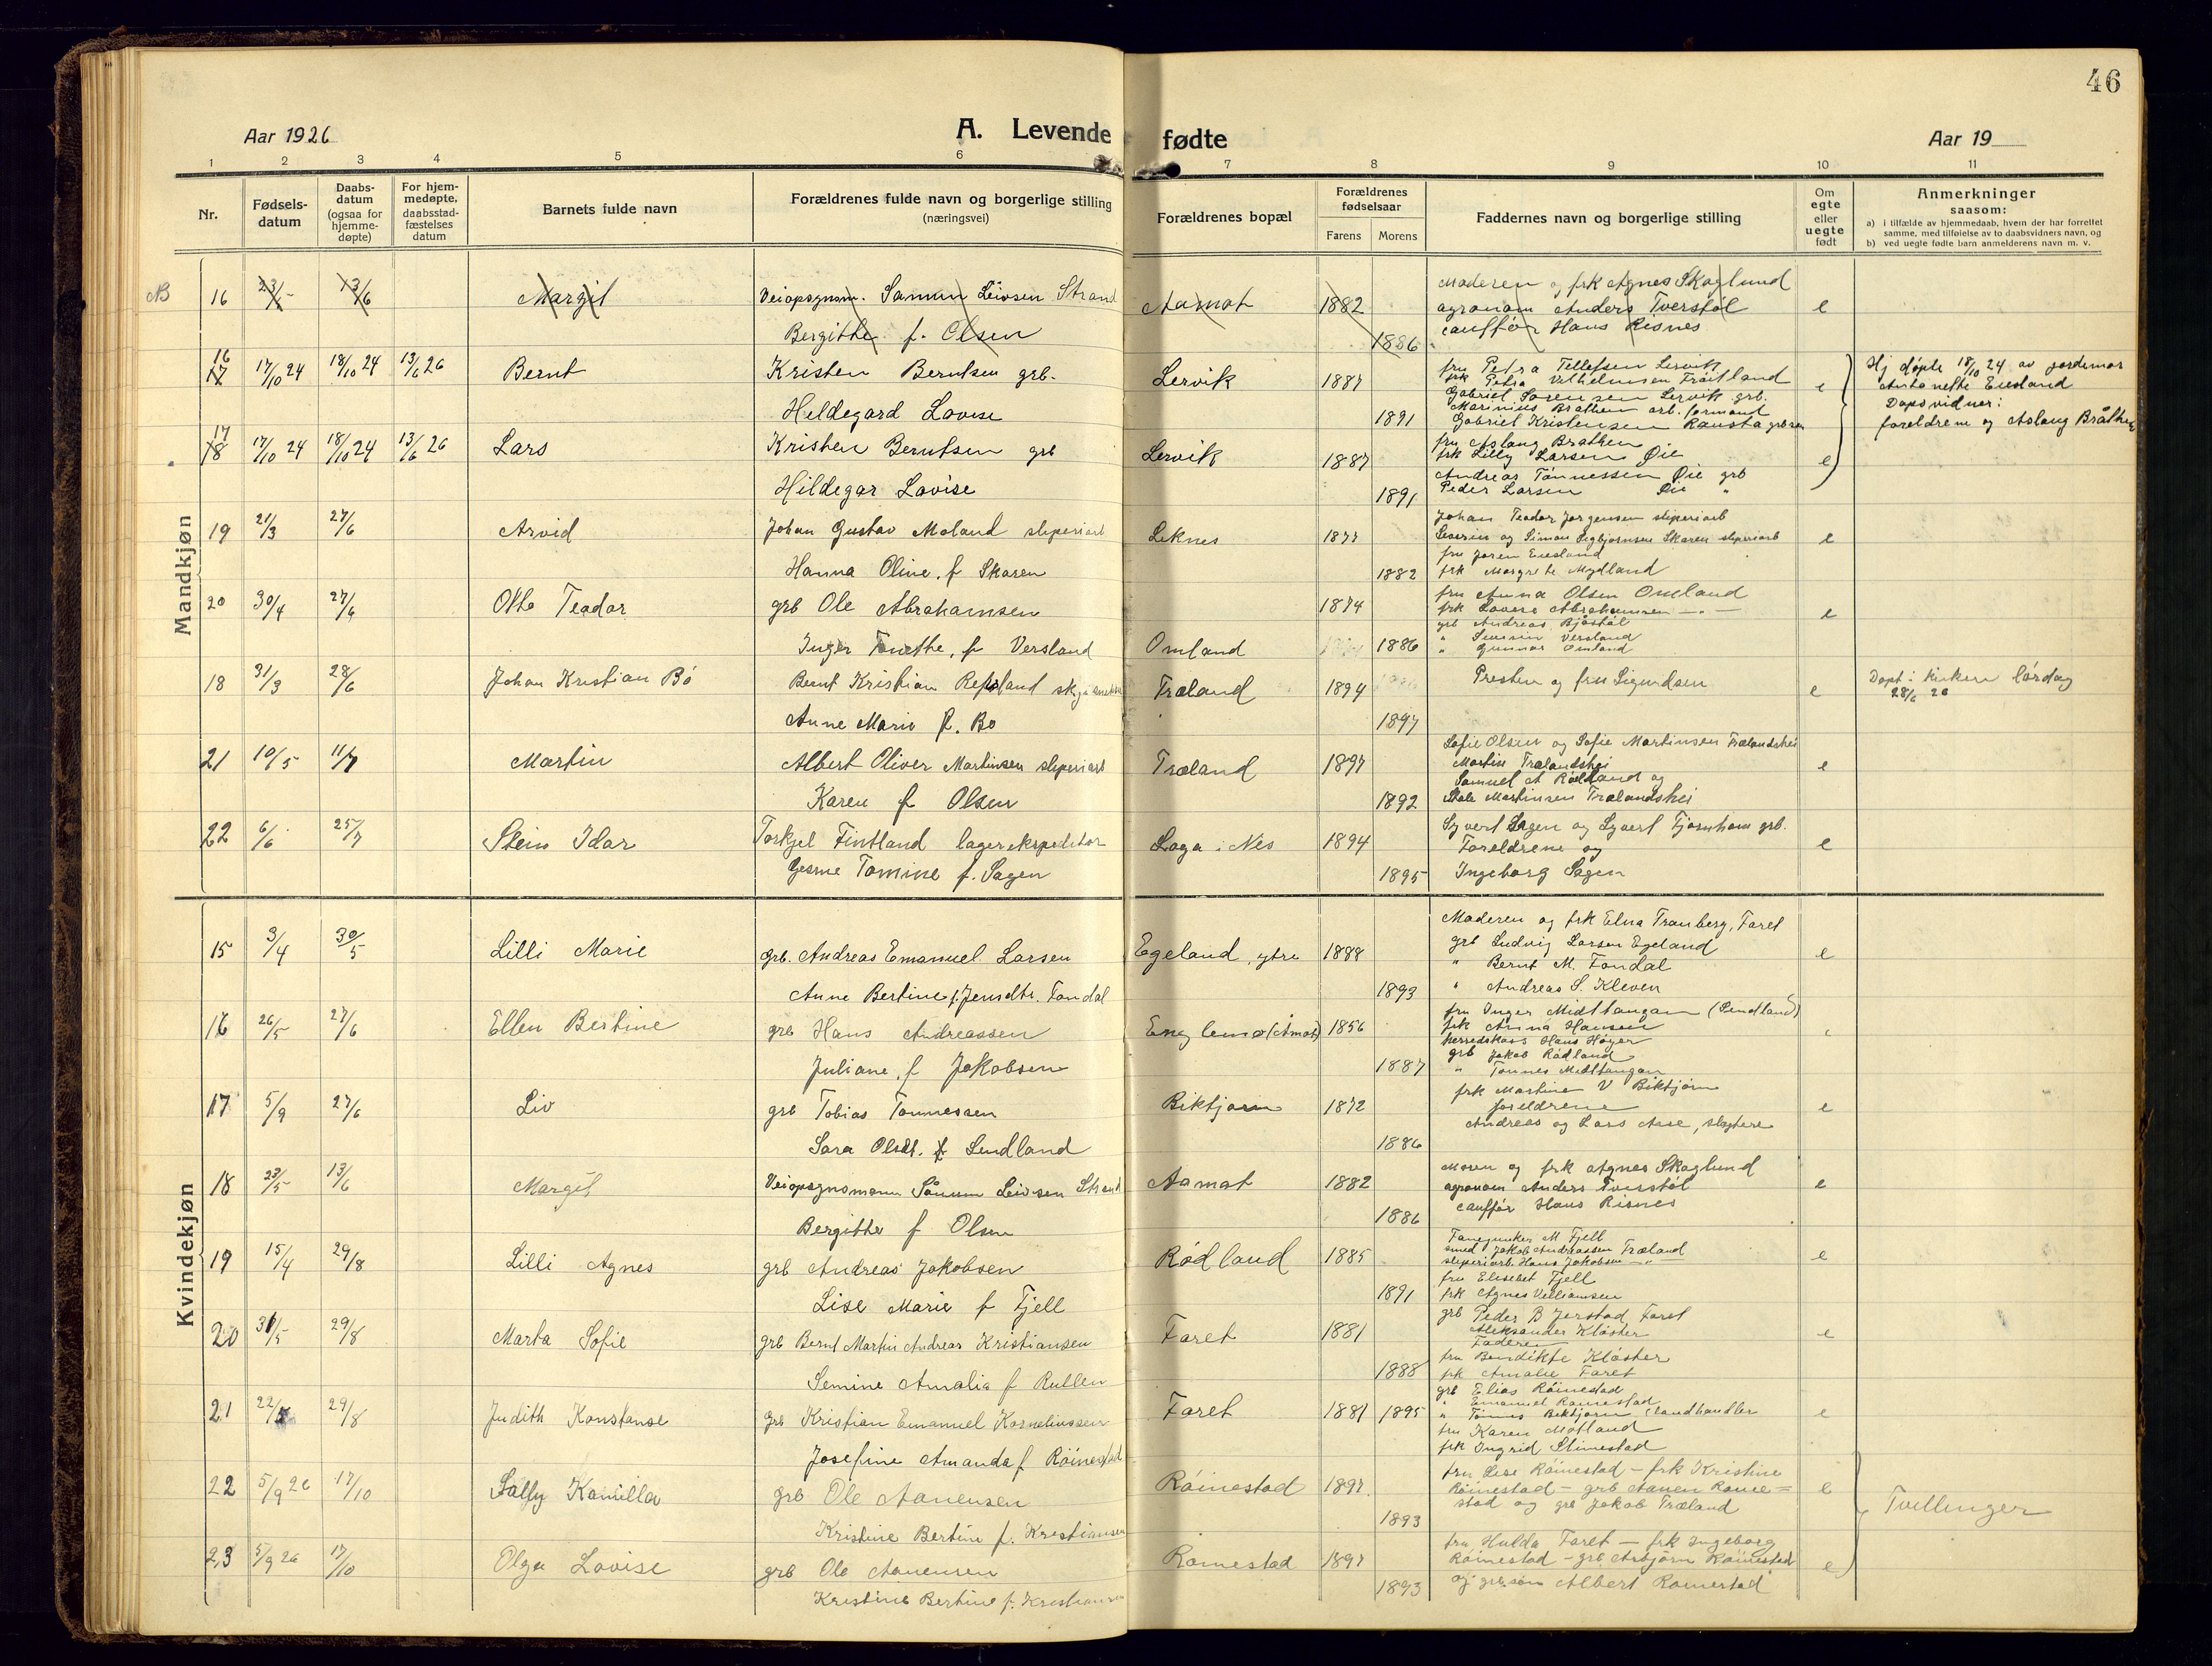 46
Aar 1926
A. Levende fødte
Aar 19
1 2 3 4 5 6 7 8 9 10 11
Nr.
Fødsels-
datum
Daabs-
datum
(ogsaa for
hjemme-
døpte)
For hjem-
medøpte,
daabsstad-
fæstelses
datum
Barnets fulde navn
Forældrenes fulde navn og borgerlige stilling
(næringsvei)
Forældrenes bopæl
Forældrenes
fødselsaar
Farens Morens
Faddernes navn og borgerlige stilling
Om
egte
eller
uegte
født
Anmerkninger
saasom:
a) i tilfælde av hjemmedaab, hvem der har forrettet
samme, med tilføielse av to daabsvidners navn, og
b) ved uegte fødte barn anmelderens navn m. v.
Mandkjøn
NB 16 23/5 13/6 Margit Veiopsynsm. Samun Leivsen Strand Aamot 1882 Moderen og frk Agnes Skoglund e
agronom Anders Tverstøl
Bergitthe f. Olsen 1886 cauffør Hans Risnes
16 17 17/10 24 18/10 24 13/6 26 Bernt Kristen Berntsen grb. Lervik 1887 fru Petra Tellefsen Lervik e Hj døpte 18/10 24 av jordemor
frk Petra Vilhelmsen Frøitland
Gabriel Sørensen Lervik grb.
Hildegard Lovise 1891 Marinius Brathen arb. formand Dåpsvidner:
Gabriel Kristensen foreldrene og Aslaug Bråthen
17 18 17/10 24 18/10 24 13/6 26 Lars Kristen Berntsen grb Lervik 1887 fru Aslaug Brathen e
frk Lilly Larsen Øie
Andreas Tønnessen Øie grb
Hildegar Lovise 1891 Peder Larsen Øie "
19 21/3 27/6 Arvid Johan Gustav Moland sliperiarb Leknes 1877 Johan Teodor Jørgensen sliperiarb e
Severin og Simon Sigbjørnsen Skaren sliperiarb
Hanna Oline, f Skaren 1882 frk Margrete Mydland
20 30/4 27/6 Otto Teodor grb Ole Abrahamsen 1874 fru Anna Olsen Omland e
frk Lovise Abrahamsen - " -
grb Andreas Bjøstøl
Inger f Versland Omland 1886 " Severin Versland
" Gunnar Omland
18 31/3 28/6 Johan Kristian Bö Bernt Kristian Træland 1894 Presten og fru Sigundsen e Døpt i kirken lördag
28/6 26
Anne Marie f. Bo 1897
21 10/5 11/7 Martin Albert Oliver Martinsen sliperiarb Træland 1897 Sofie Olsen og Sofie Martinsen Trælandshei e
Martin Trælandshei
Samuel A Rødland og
Karen f Olsen 1892 Martinsen Trælandshei
22 6/6 25/7 Stein Idar Torkjel Fintland lagerekspeditør Loga i Nes 1894 Syvert Sagen og Syvert Fjørnhom grb. e
Foreldrene og
Tomine f. Sagen 1895 Ingeborg Sagen
Kvindekjøn
15 3/4 30/5 Lilli Marie grb. Andreas Emanuel Larsen Egeland, ytre 1888 Moderen og frk Elna Tranberg, Faret e
grb Ludvig Larsen Egeland
" Bernt M. Fondal
Anne Bertine f. Jensdtr. Fondal 1893 " Andreas S. Kleven
16 26/5 27/6 Ellen Bertine grb Hans Andreassen (Åmot) 1856 fru Inger Midttangan (Pendland)
frk Anna Hansen
herredskass Hans Høyer
grb Jakob Rødland
Juliane, f Jakobsen 1887 " Tønnes Midttangan
17 5/9 27/6 Liv grb Tobias Tønnessen Biktjørn 1872 frk Martine V Biktjørn e
foreldrene
Andreas og Lars Aase, slagtere
Sara Olsdt. f Lendland 1886
18 23/5 13/6 Margit Veiopsynsmann Leivsen Strand Aamot 1882 Moren og frk Agnes Skoglund e
agronom Anders Tverstøl
Bergitthe f Olsen 1886 cauffør Hans Risnes
19 15/4 29/8 Lilli Agnes grb Andreas Jakobsen Rødland 1885 Fanejunker M Fjell e
smed Jakob Andreassen Træland
sliperiarb. Hans Jakobsen - " -
fru Elisebet Fjell
Lise Marie f Fjell 1891 frk Agnes Villiamsen
20 31/5 29/8 Marta Sofie grb Bernt Martin Andreas Kristiansen Faret 1881 grb Peder B Jerstad Faret e
Aleksander Kløster
Faderen
fru Bendikte Kløster
Semine Amalia f Rullen 1888 frk Amalie Faret
21 22/5 29/8 Judith Konstanse grb Kristian Emanuel Korneliussen Faret 1881 1895 grb Elias Röinestad e
" Emanuel Røinestad
" Tønnes Biktjørn landhandler
fru Karen Motland
Josefine Amanda f Röinestad frk Ingrid Stimestad
22 5/9 26 17/10 Sally Kamilla grb Ole Aanensen Röinestad 1897 fru Lise Röinestad - frk Kristine e Tvillinger
Röinestad - grb Aanen Røine=
stad og grb Jakob Træland
Kristine Bertine f. Kristiansen 1893
23 5/9 26 17/10 Olga Lovise grb Ole Aanensen Røinestad 1897 fru Hulda Faret - frk Ingeborg e
Röinestad - grb Asbjørn Röinestad
Kristine Bertine f. Kristiansen 1893 og grb.søn Albert Røinestad